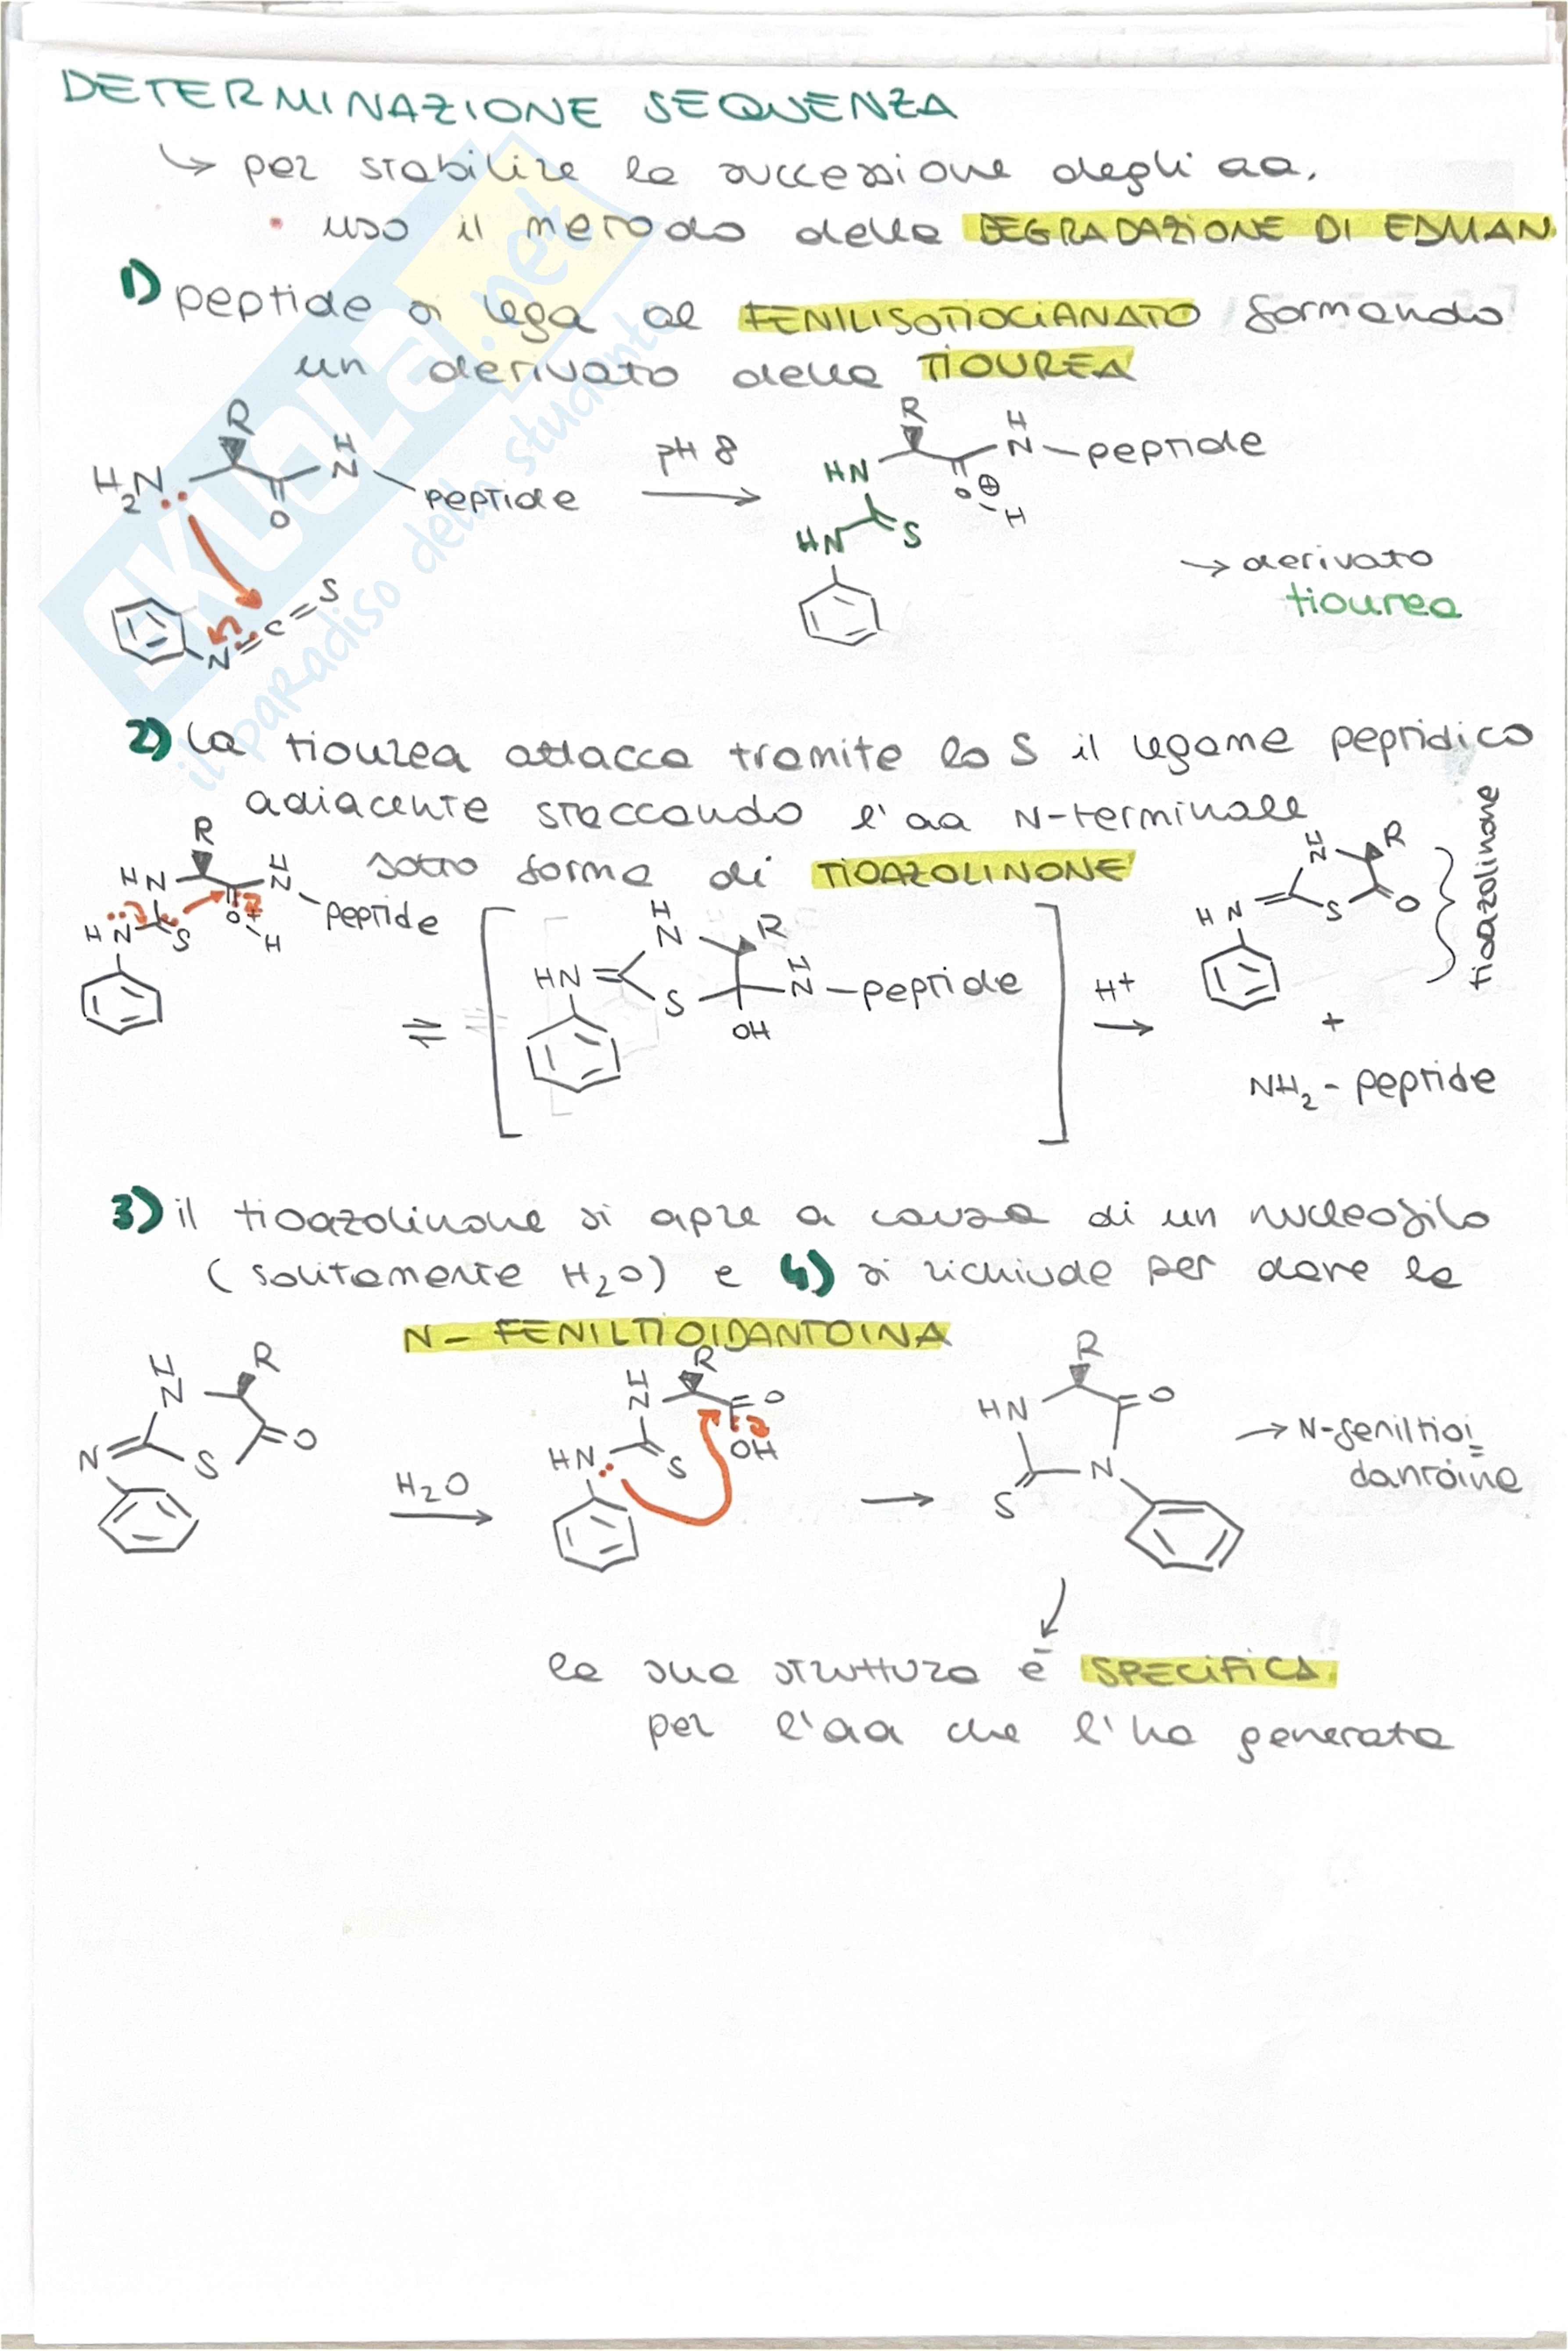 DETERMINAZIONE SEQUENZA
↳ per stabilire la successione degli aa.
• uso il metodo della DEGRADAZIONE DI EDMAN
1) peptide si lega al FENILISOTIOCIANATO formando
un derivato della TIOUREA
R
H
H₂N
N
peptide
O
pH 8
→
R
H
HN
N
peptide
O ⊕
H
HN
S
S
C
N
→ derivato
tiourea
2) la tiourea attacca tramite lo S il legame peptidico
adiacente staccando l'aa N-terminale
sotto forma di TIOAZOLINONE
R
H N
H
N
peptide
O +
H
H N
S
⇌
H
N
R
HN
H
N
peptide
S
OH
H+
→
H
N
R
H N
S
O
tioazolinone
+
NH₂ - peptide
3) il tioazolinone si apre a causa di un nucleofilo
(solitamente H₂O) e 4) si richiude per dare la
N - FENILTIOIDANTOINA
H
N
R
N
S
O
H₂O
→
R
H
N
O
OH
HN
S
→
R
HN
O
N
S
→ N-feniltioi
dantoina
la sua struttura è SPECIFICA
per l'aa che l'ha generata
SKUOLA.net
il paradiso dello studente